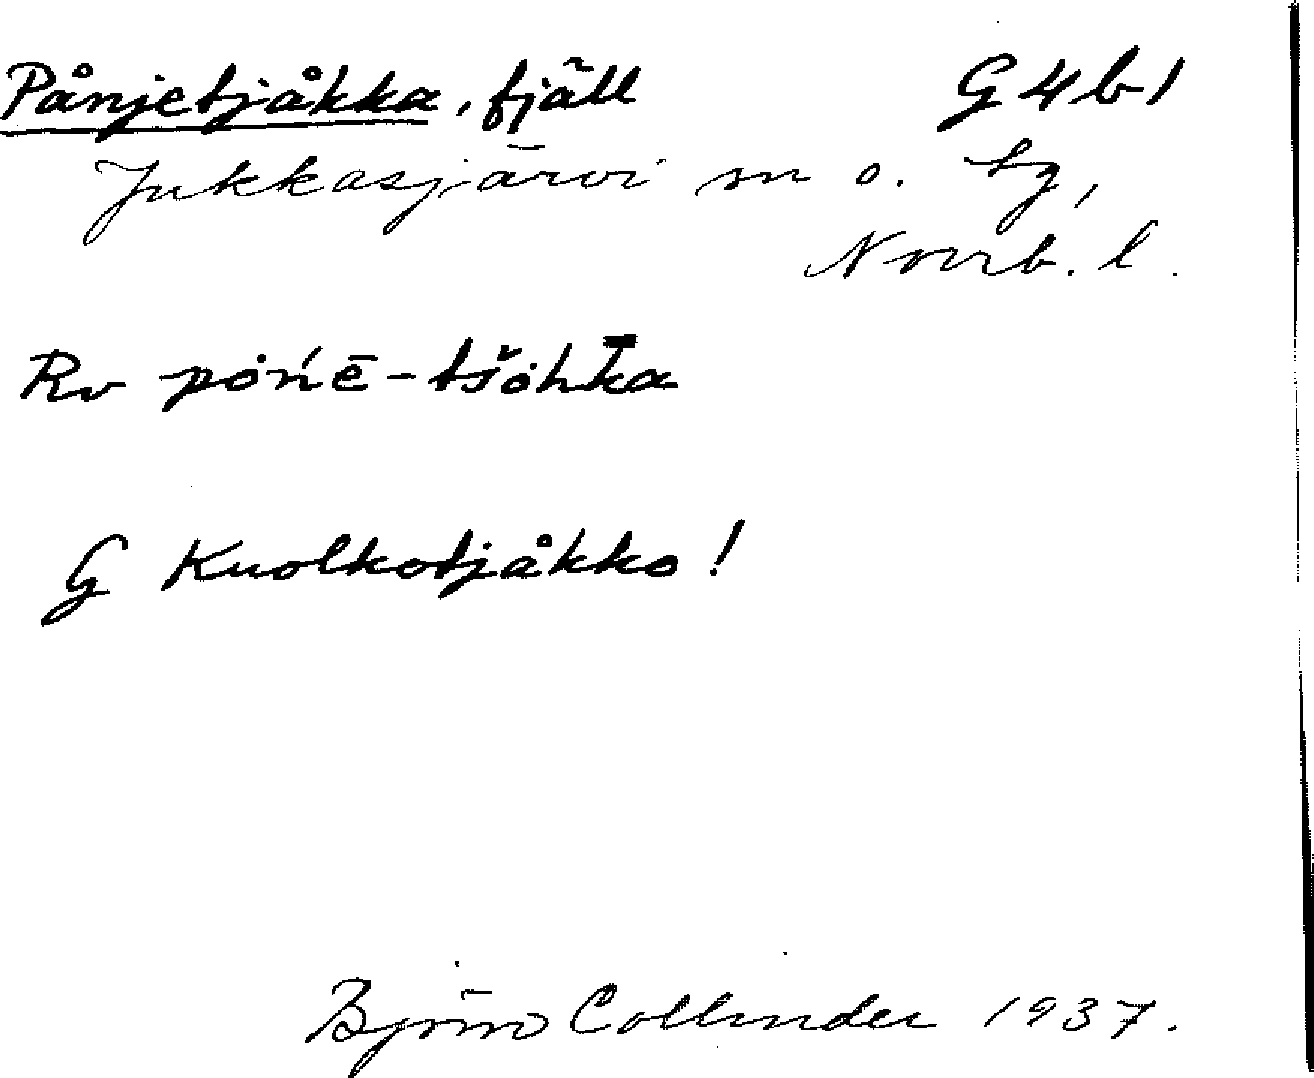 Pånjetjåkka, fjäll G4b1
Jukkasjärvi sn o. tg,
Norrb. l.
Rv pȯńē-tšȯhk̄a
G Kuolkotjåkko!
Björn Collinder 1937.